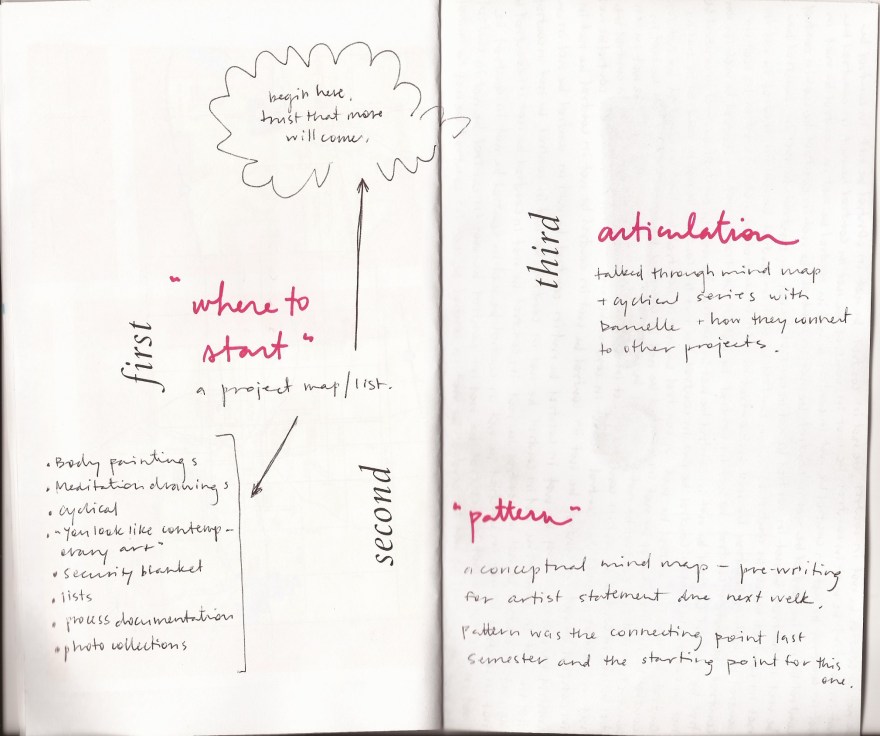 begin here.
trust that more
will come.
first
"where to
start"
a project map/list.
• Body paintings
• Meditation drawings
• cyclical
• "You look like contemp-
orary art"
• security blanket
• lists
• process documentation
• photo collections
second
"pattern"
a conceptual mind map – pre-writing
for artist statement due next week.
pattern was the connecting point last
semester and the starting point for this
one.
third
articulation
talked through mind map
+ cyclical series with
Danielle + how they connect
to other projects.